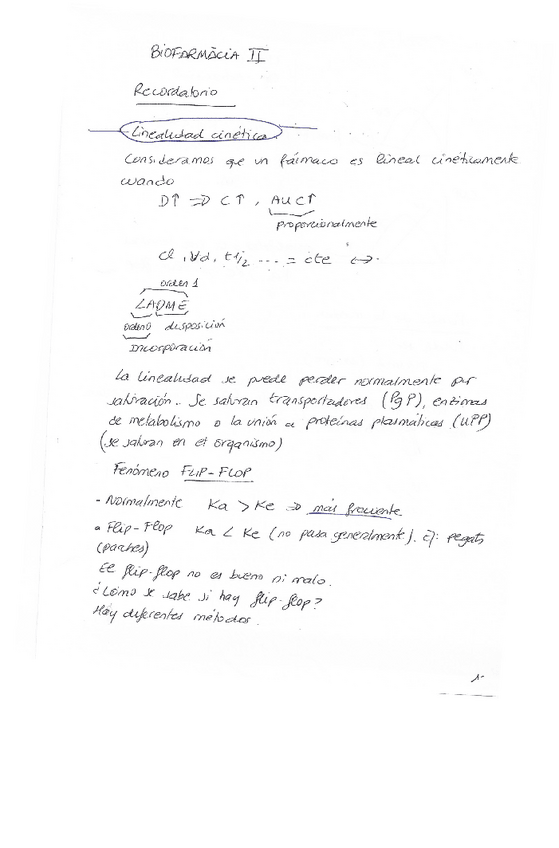 BIOFARMÀCIA II
Recordatorio
Linealidad cinética
Consideramos que un fármaco es lineal cinéticamente
cuando
D↑ => C↑, AUC↑
proporcionalmente
Cl, Vd, t1/2 ... = cte <->.
orden 1
LADME
orden 0 disposición
Incorporación
La linealidad se puede perder normalmente por
saturación. Se saturan transportadores (PgP), enzimas
de metabolismo o la unión a proteínas plasmáticas (UPP)
(se saturan en el organismo)
Fenómeno FLIP-FLOP
- Normalmente Ka > Ke => más frecuente
- Flip-Flop Ka < Ke (no pasa generalmente). Ej: pegats
(parches)
El flip-flop no es bueno ni malo.
¿Cómo se sabe si hay flip-flop?
Hay diferentes métodos.
1-